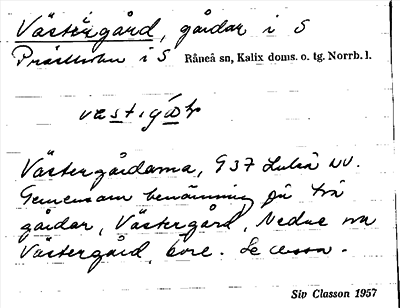 Västergård, gårdar i S
Prästholm i S Råneå sn, Kalix doms. o. tg. Norrb. l.
Västergårdarna, G37 Luleå NV.
Gemensam benämning på två
gårdar, Västergård, Nedre och
Västergård, övre. Se dessa.
Siv Classon 1957